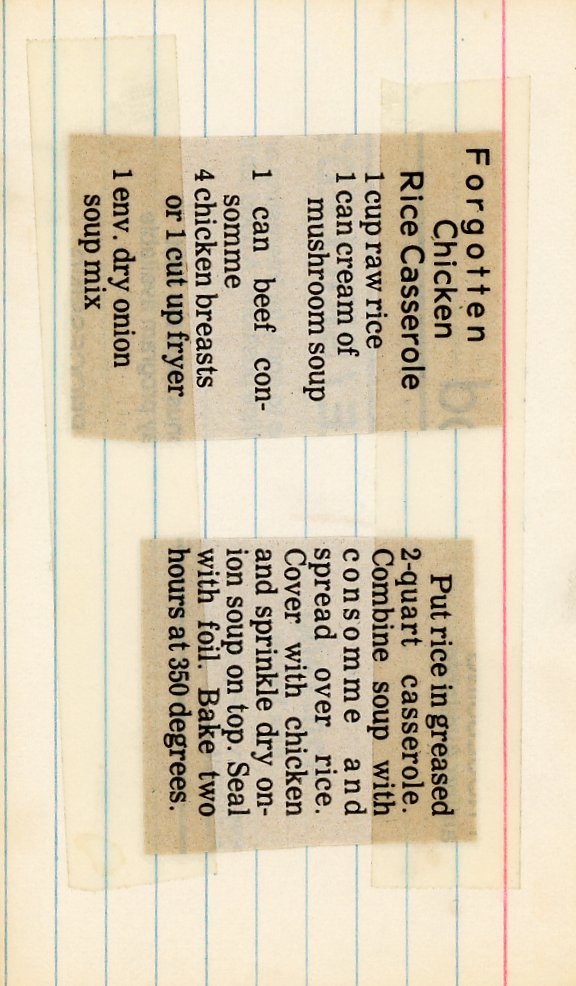 Forgotten
Chicken
Rice Casserole
1 cup raw rice
1 can cream of
mushroom soup
1 can beef con-
somme
4 chicken breasts
or 1 cut up fryer
1 env. dry onion
soup mix
Put rice in greased
2-quart casserole.
Combine soup with
consomme and
spread over rice.
Cover with chicken
and sprinkle dry on-
ion soup on top. Seal
with foil. Bake two
hours at 350 degrees.